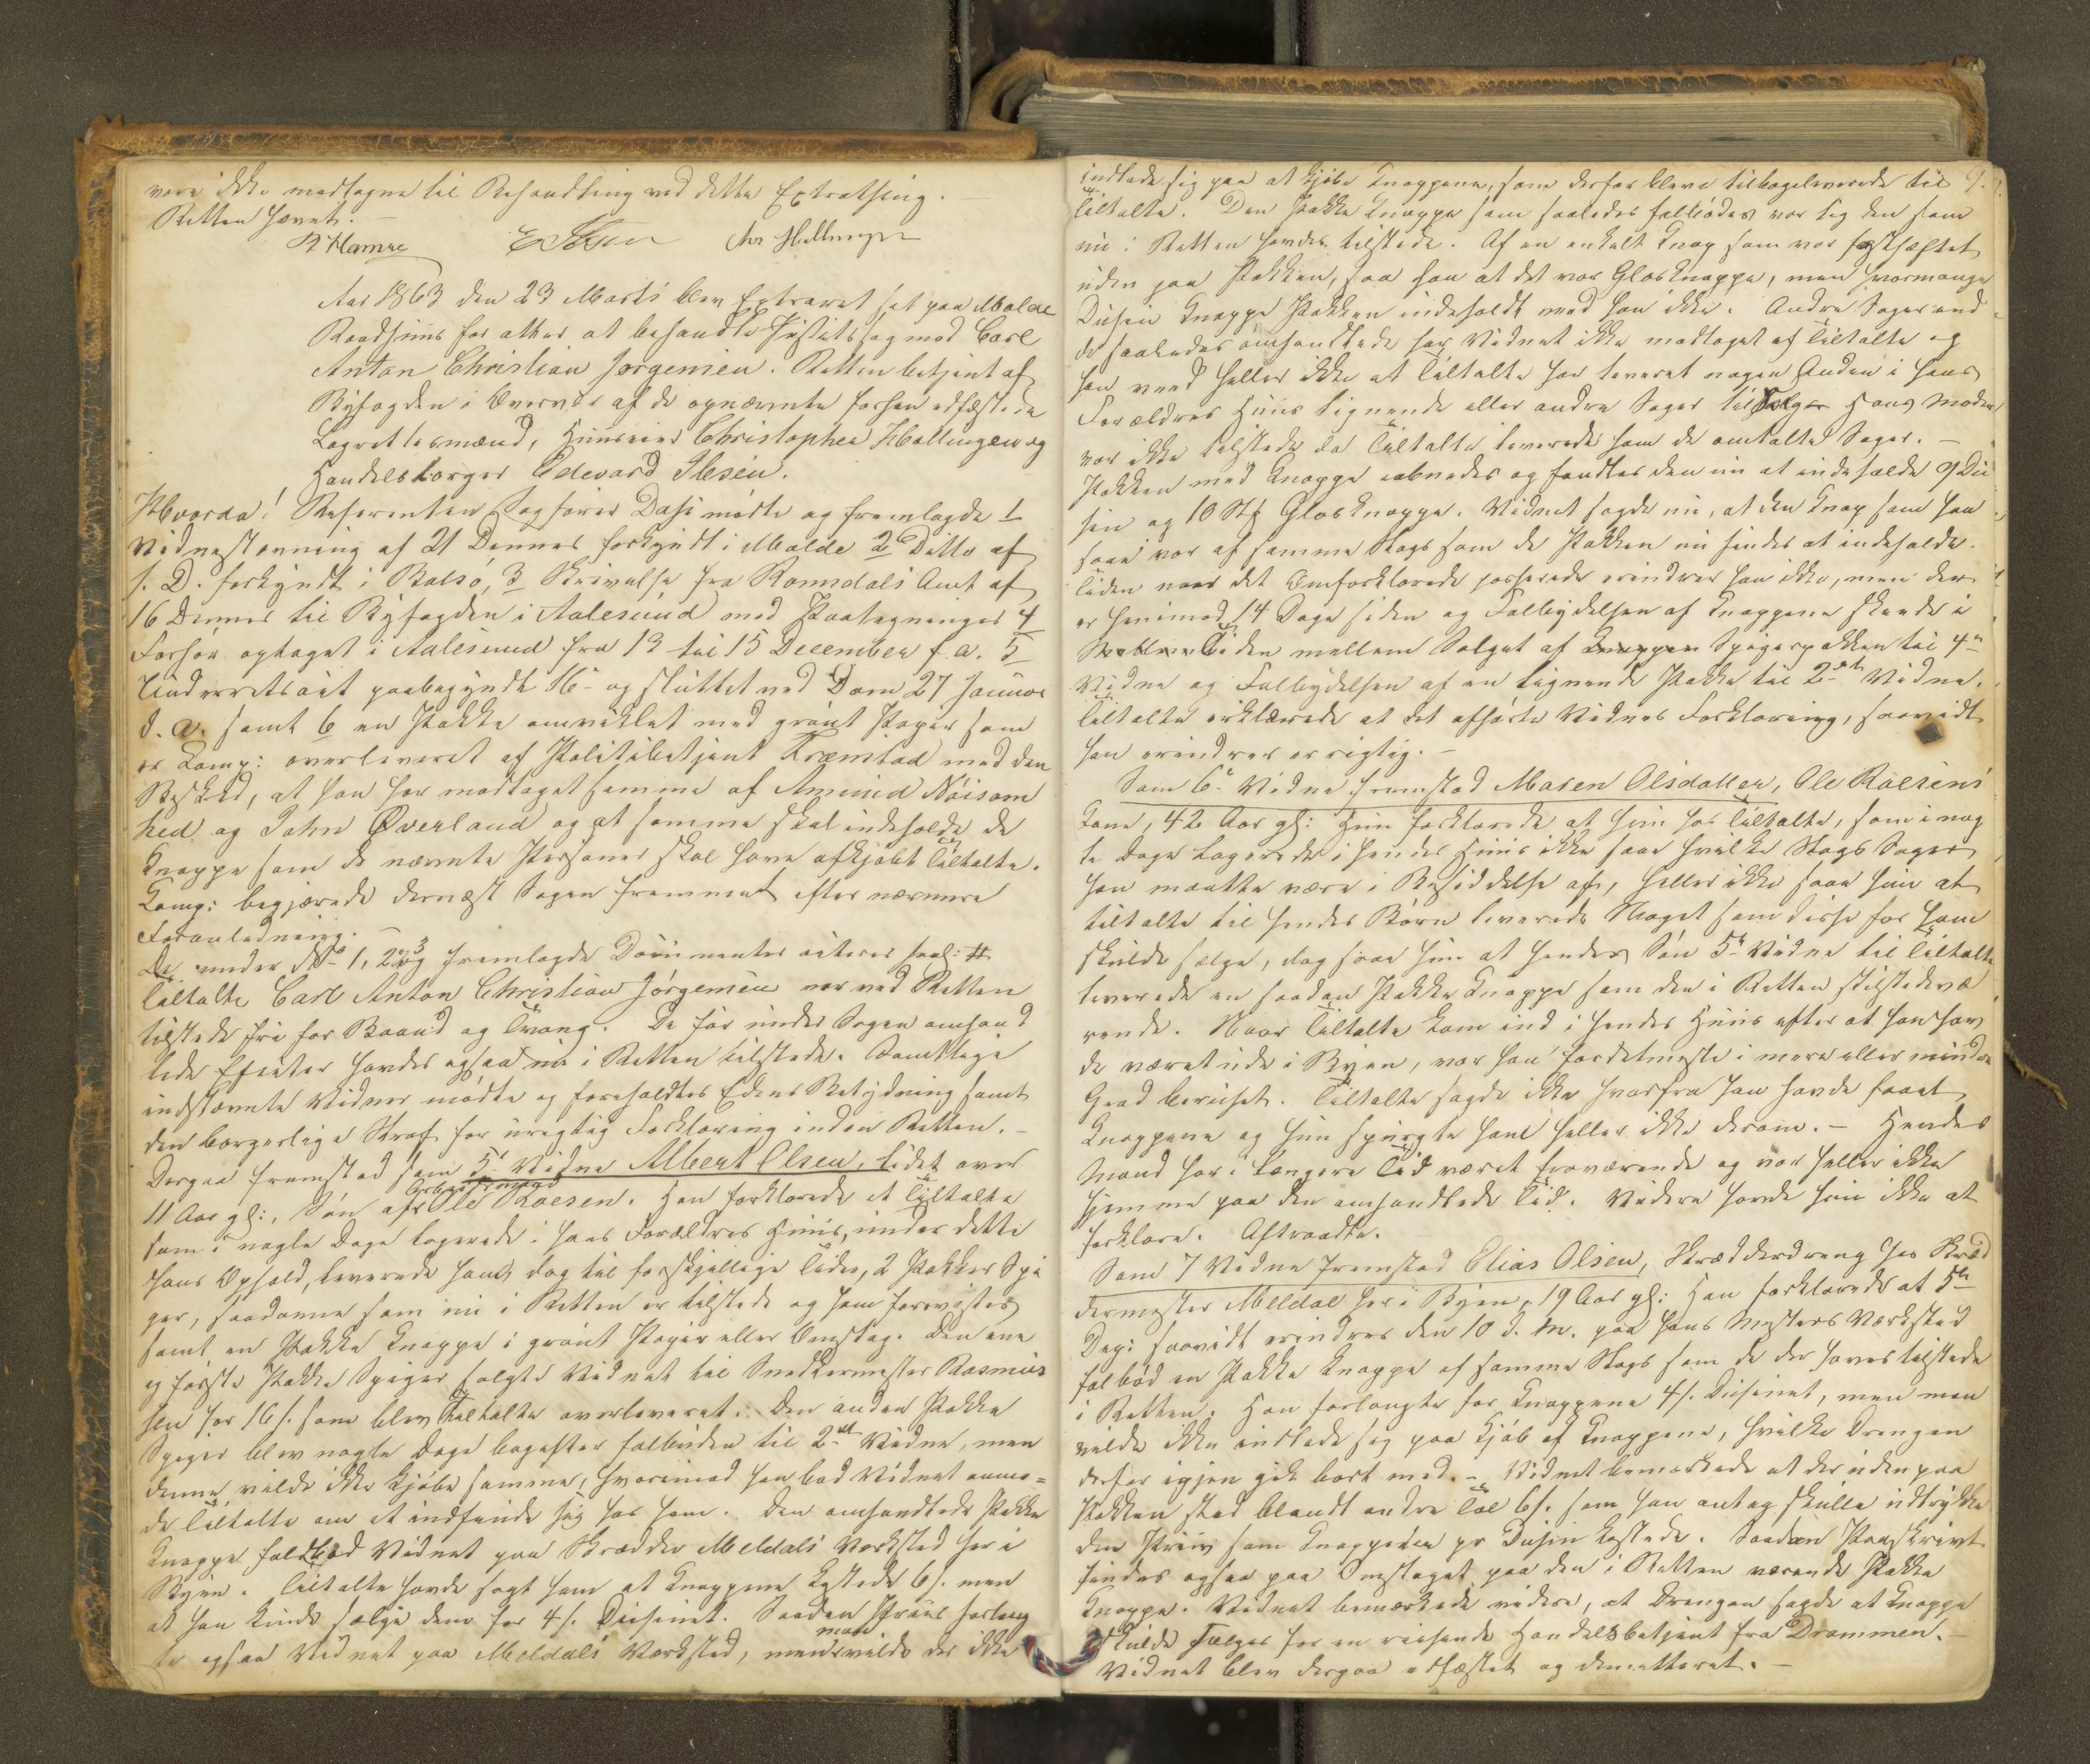 være ikke modtagne til Behandling ved dette Extrathing.
Retten hævet. –
R Hamre E Ibsen Chr Hollingen
Aar 1863 den 23 Marts blev Extraret sat paa Molde
Raadhuus for atter at behandle Justitssag mod Carl
Anton Christian Jørgensen. Retten betjent af
Byfogden i Overvær af de opnævnte forhen edfæstede
Laugrettesmænd, Huuseier Christopher Hollingen og
Handelsborger Edevard Ibsen.
Hvorda! Referenten Sagfører Dass mødte og fremlagde 1
Vidnestævning af 21 Dennes forkyndt i Molde 2 Ditto af
s. D. forkyndt i Bolsø, 3 Skrivelse fra Romsdals Amt af
16 Dennes til Byfogden i Aalesund med Paategninger 4
Forhør optaget i Aalesund fra 13 til 15 December f. a. 5
Underretsact paabegyndt 16 og sluttet ved Dom 27 Januar
d. a. samt 6 en Pakke omviklet med grønt Papir som
er Comp: overleveret af Politibetjent Fræmstad med den
Besked, at han har modtaget samme af Amund Nøisom
hed og John Øverland og at samme skal indeholde de
Knappe som de nævnte Personer skal have afkjøbt Tiltalte.
Comp: begjærede dernæst Sagen fremmet efter nærmere
Foranledning. –
De under No 1, 2 og 3 fremlagde Documenter acteres saal: #
Tiltalte Carl Anton Christian Jørgensen var ved Retten
tilstede fri for Baand og Tvang. De før under Sagen omhand
lede Effecter havdes ogsaa nu i Retten tilstede. Samtlige
indstævnte Vidner mødte og foreholdtes Edens Betydning samt
den borgerlige Straf for urigtig Forklaring inden Retten. –
Derpaa fremstod som 5t Vidne Albert Olsen, lidet over
11 Aar gl:, Søn af Arbeidsmand Ole Roesen. Han forklarede at Tiltalte
som i nogle Dage logerede i hans Forældres Huus, under dette
hans Ophold, leverede ham, dog til forskjellige Tider, 2 Pakker Spi
ger, saadanne som nu i Retten er tilstede og ham forevistes
samt en Pakke Knappe i grønt Papir eller Omslag. Den ene
og første Pakke Spiger solgte Vidnet til Snedkermester Rasmus
sen for 16 s. som blev Tiltalte overleveret. Den anden Pakke
Spiger blev nogle Dage bagefter falbuden til 2det Vidne, men
denne vilde ikke kjøbe samme, hvorimod han bad Vidnet anmo=
de Tiltalte om at indfinde sig hos ham. Den omhandlede Pakke
Knappe faldbød Vidnet paa Skrædder Meldals Værksted her i
Byen. Tiltalte havde sagt ham at Knappene kostede 6 s. men
at han kunde sælge dem for 4 s. Dusinet. Saadan Priis forlang
te ogsaa Vidnet paa Meldals Værksted, men man vilde der ikke
9.
indlade sig paa at kjøbe Knappene, som derfor bleve tilbageleverede til
Tiltalte. Den Pakke Knappe som saaledes falbødes var lig den som
nu i Retten havdes tilstede. Af en enkelt Knap som var fasthæftet
uden paa Pakken, saa han at det var Glasknappe, men hvormange
Dusin Knappe Pakken indeholdt veed han ikke. Andre Sager end
de saaledes omhandlede har Vidnet ikke modtaget af Tiltalte og
han veed heller ikke at Tiltalte har leveret nogen Anden i hans
Forældres Huus lignende eller andre Sager til Salg. Hans Moder
var ikke tilstede da Tiltalte leverede ham de omtalte Sager. –
Pakken med Knappe aabnedes og fandtes den nu at indeholde 9 Du
sin og 10 Stk Glasknappe. Vidnet sagde nu, at den Knap som han
saae var af samme Slags som de Pakken nu findes at indeholde.
Tiden naar det Omforklarede passerede erindrer han ikke, men der
er henimod 14 Dage siden og Falbydelsen af Knappene skeede i
Tiden mellem Salget af Spigerpakken til 4de
Vidne og Falbydelsen af en lignende Pakke til 2det Vidne.
Tiltalte erklærede at det afhørte Vidnes Forklaring, saavidt
han erindrer er rigtig. –
Som 6te Vidne fremstod Maren Olsdatter, Ole Roesens
Kone, 42 Aar gl: Hun forklarede at hun hos Tiltalte, som i nog
le Dage logerede i hendes Huus ikke saae hvilke Slags Sager
han maatte være i Besiddelse af, heller ikke saae hun at
tiltalte til hendes Børn leverede Noget som disse for ham
skulde sælge, dog saae hun at hendes Søn 5te Vidne til Tiltalte
leverede en saadan Pakke Knappe som den i Retten tilstedevæ
rende. Naar Tiltalte kom ind i hendes Huus efter at han hav
de været ude i Byen, var han fordetmeste i mere eller mindre
Grad beruset. Tiltalte sagde ikke hvorfra han havde faaet
Knappene og hun spurgte ham heller ikke derom. – Hendes
Mand har i længere Tid været fraværende og var heller ikke
hjemme paa den omhandlede Tid. Videre havde hun ikke at
forklare. Aftraadte.
Som 7 Vidne fremstod Elias Olsen, Skrædderdreng hos Skræd
dermester Meldal her i Byen, 19 Aar gl: Han forklarede at 5te
Dep: saavidt erindres den 10 d. M. paa hans Mesters Værksted
falbød en Pakke Knappe af samme Slags som de der haves tilstede
i Retten. Han forlangte for Knappene 4 s. Dusinet, men man
vilde ikke indlade sig paa Kjøb af Knappene, hvilke Drengen
derfor igjen gik bort med. – Vidnet bemærkede at der uden paa
Pakken stod blandt andre Tal 6 s. som han antog skulle udtrykke
den Priis som Knappene pr Dusin kostede. Saadan Paaskrivt
findes ogsaa paa Omslaget paa den i Retten værende Pakke
Knappe. Vidnet bemærkede videre, at Drengen sagde at Knappe
skulde sælges for en reisende Handelsbetjent fra Drammen. –
Vidnet blev derpaa edfæstet og demitteret. –